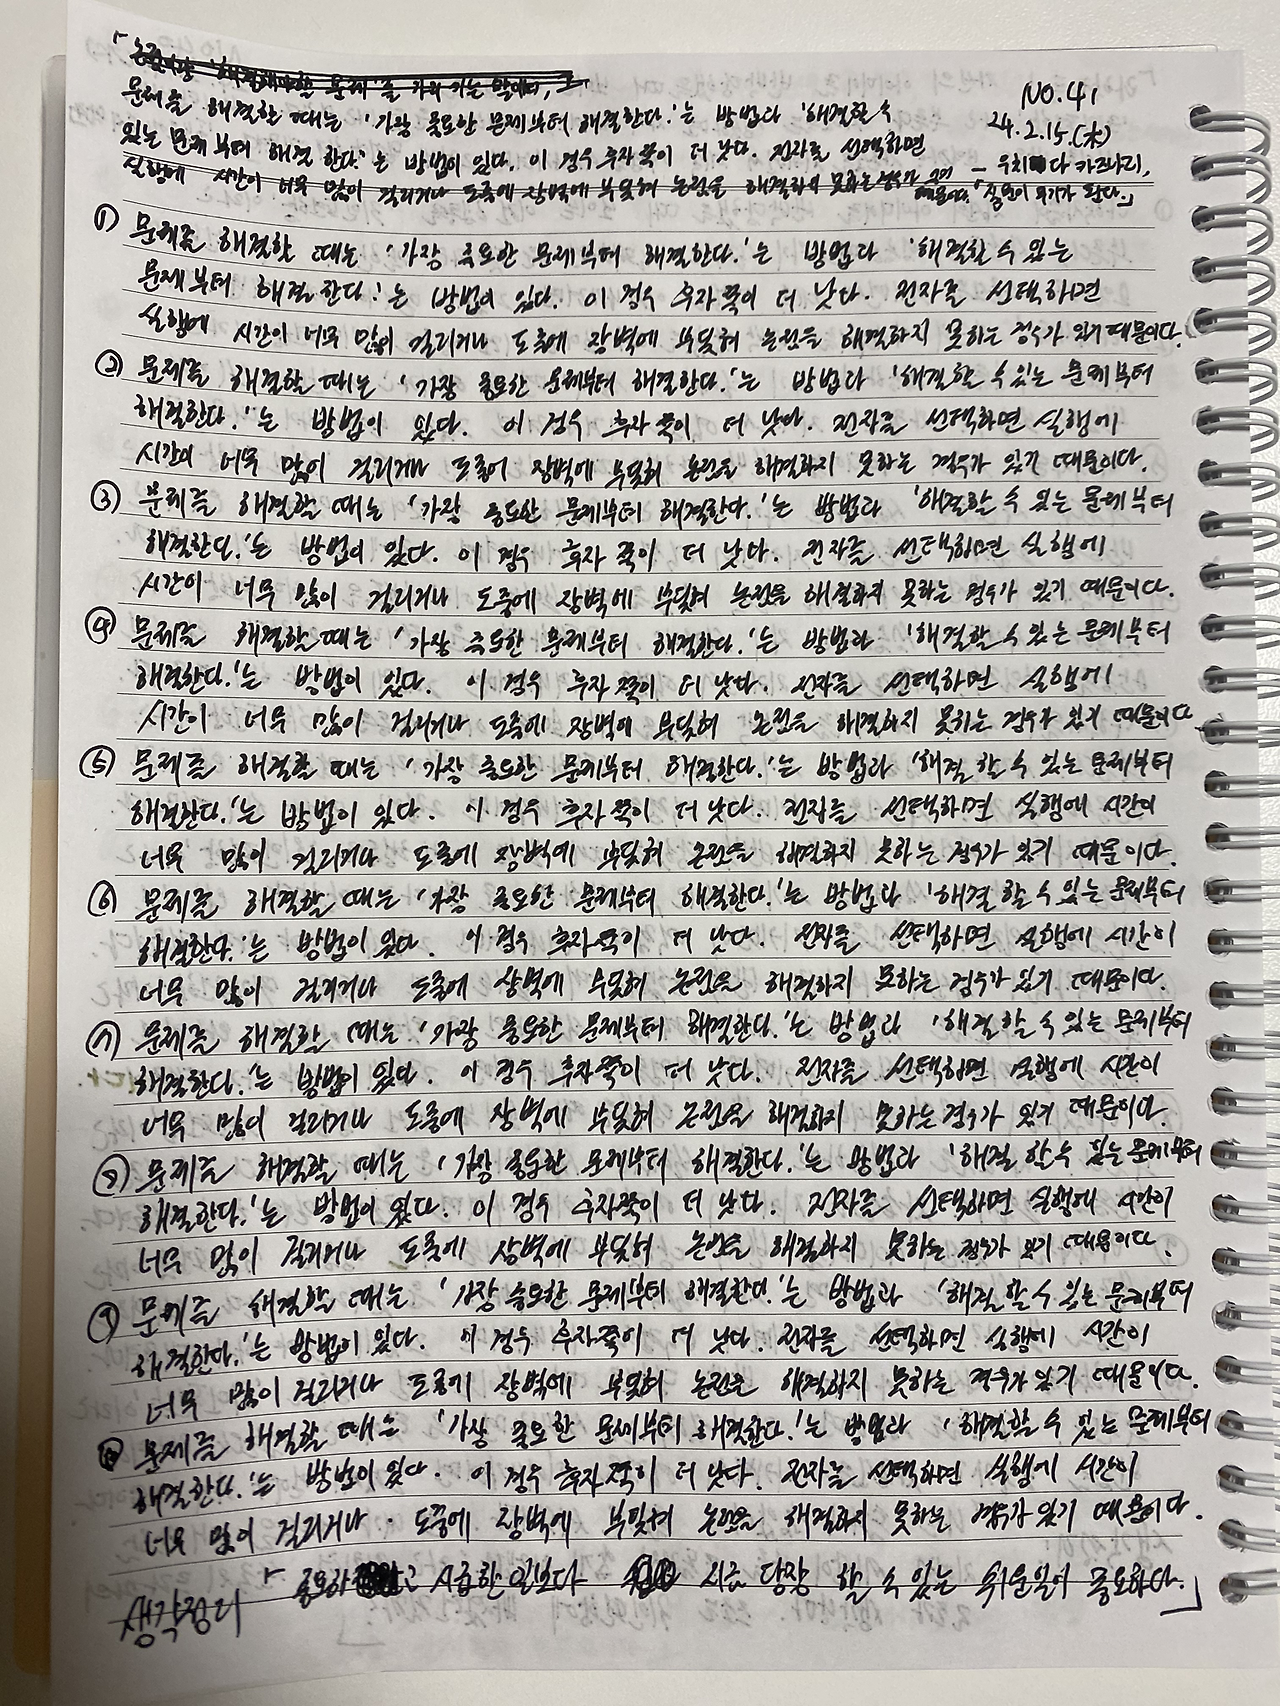 「논점이란 '해결해야할 문제'를 가리키는 말이며, 그
문제를 해결할 때는 '가장 중요한 문제부터 해결한다.'는 방법과 '해결할 수
있는 문제부터 해결한다.'는 방법이 있다. 이 경우 후자 쪽이 더 낫다. 전자를 선택하면
실행에 시간이 너무 많이 걸리거나 도중에 장벽에 부딪혀 논점을 해결하지 못하는 경우가 있기 때문이다.
NO.41
24.2.15.(木)
- 우치다 카즈나리,
「질문이 무기가 된다.」
① 문제를 해결할 때는 '가장 중요한 문제부터 해결한다.'는 방법과 '해결할 수 있는
문제부터 해결한다.'는 방법이 있다. 이 경우 후자 쪽이 더 낫다. 전자를 선택하면
실행에 시간이 너무 많이 걸리거나 도중에 장벽에 부딪혀 논점을 해결하지 못하는 경우가 있기 때문이다.
② 문제를 해결할 때는 '가장 중요한 문제부터 해결한다.'는 방법과 '해결할 수 있는 문제부터
해결한다.'는 방법이 있다. 이 경우 후자 쪽이 더 낫다. 전자를 선택하면 실행에
시간이 너무 많이 걸리거나 도중에 장벽에 부딪혀 논점을 해결하지 못하는 경우가 있기 때문이다.
③ 문제를 해결할 때는 '가장 중요한 문제부터 해결한다.'는 방법과 '해결할 수 있는 문제부터
해결한다.'는 방법이 있다. 이 경우 후자 쪽이 더 낫다. 전자를 선택하면 실행에
시간이 너무 많이 걸리거나 도중에 장벽에 부딪혀 논점을 해결하지 못하는 경우가 있기 때문이다.
④ 문제를 해결할 때는 '가장 중요한 문제부터 해결한다.'는 방법과 '해결할 수 있는 문제부터
해결한다.'는 방법이 있다. 이 경우 후자 쪽이 더 낫다. 전자를 선택하면 실행에
시간이 너무 많이 걸리거나 도중에 장벽에 부딪혀 논점을 해결하지 못하는 경우가 있기 때문이다
⑤ 문제를 해결할 때는 '가장 중요한 문제부터 해결한다.'는 방법과 '해결할 수 있는 문제부터
해결한다.'는 방법이 있다. 이 경우 후자 쪽이 더 낫다. 전자를 선택하면 실행에 시간이
너무 많이 걸리거나 도중에 장벽에 부딪혀 논점을 해결하지 못하는 경우가 있기 때문이다.
⑥ 문제를 해결할 때는 '가장 중요한 문제부터 해결한다.'는 방법과 '해결할 수 있는 문제부터
해결한다.'는 방법이 있다. 이 경우 후자 쪽이 더 낫다. 전자를 선택하면 실행에 시간이
너무 많이 걸리거나 도중에 장벽에 부딪혀 논점을 해결하지 못하는 경우가 있기 때문이다.
⑦ 문제를 해결할 때는 '가장 중요한 문제부터 해결한다.'는 방법과 '해결할 수 있는 문제부터
해결한다.'는 방법이 있다. 이 경우 후자 쪽이 더 낫다. 전자를 선택하면 실행에 시간이
너무 많이 걸리거나 도중에 장벽에 부딪혀 논점을 해결하지 못하는 경우가 있기 때문이다.
⑧ 문제를 해결할 때는 '가장 중요한 문제부터 해결한다.'는 방법과 '해결할 수 있는 문제부터
해결한다.'는 방법이 있다. 이 경우 후자 쪽이 더 낫다. 전자를 선택하면 실행에 시간이
너무 많이 걸리거나 도중에 장벽에 부딪혀 논점을 해결하지 못하는 경우가 있기 때문이다.
⑨ 문제를 해결할 때는 '가장 중요한 문제부터 해결한다.'는 방법과 '해결할 수 있는 문제부터
해결한다.'는 방법이 있다. 이 경우 후자 쪽이 더 낫다. 전자를 선택하면 실행에 시간이
너무 많이 걸리거나 도중에 장벽에 부딪혀 논점을 해결하지 못하는 경우가 있기 때문이다.
⑩ 문제를 해결할 때는 '가장 중요한 문제부터 해결한다.'는 방법과 '해결할 수 있는 문제부터
해결한다.'는 방법이 있다. 이 경우 후자 쪽이 더 낫다. 전자를 선택하면 실행에 시간이
너무 많이 걸리거나 도중에 장벽에 부딪혀 논점을 해결하지 못하는 경우가 있기 때문이다.
「중요하고 시급한 일보다 지금 당장 할 수 있는 쉬운일이 중요하다.」
생각정리